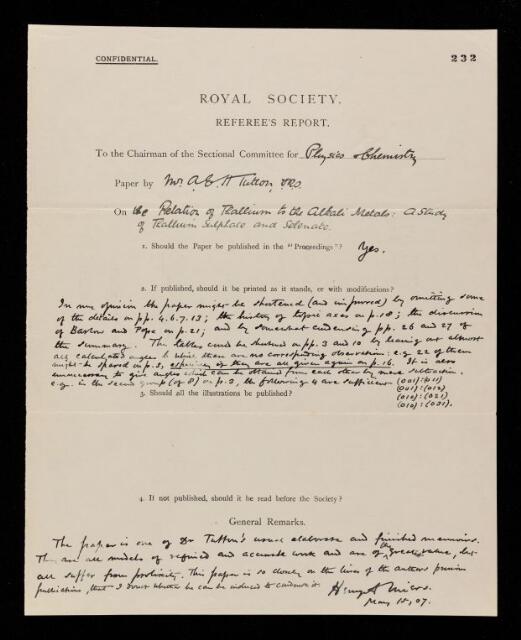 CONFIDENTIAL.
232
ROYAL SOCIETY.
REFEREE'S REPORT.
To the Chairman of the Sectional Committee for Physics & Chemistry
Paper by Mr. A. E. H. Tutton, F.R.S.
On the Relation of Thallium to the Alkali Metals: a Study
of Thallium Sulphate and Selenate.
1. Should the Paper be published in the "Proceedings"? Yes.
2. If published, should it be printed as it stands, or with modifications?
In my opinion the paper might be shortened (and improved) by omitting some
of the details on pp. 4. 6. 7. 13; the history of topic axes on p. 18; the discussion
of Barlow and Pope on p. 21; and by somewhat condensing pp. 26 and 27 of
the summary. The tables could be shortened on pp. 3 and 10 by leaving out almost
all calculated angles to which there are no corresponding observations: e.g. 22 of them
might be spared on p. 3, especially as they are all given again on p. 16. It is also
unnecessary to give angles which can be obtained from each other by mere subtraction.
e.g. in the second group (of 8) on p. 3, the following 4 are sufficient
(001):(011)
(001):(012)
(010):(021)
(010):(031).
3. Should all the illustrations be published?
4. If not published, should it be read before the Society?
General Remarks.
The paper is one of Dr Tutton's usual elaborate and finished memoirs.
They are all models of refined and accurate work and are of the greatest value, but
all suffer from prolixity. This paper is so closely on the lines of the author's previous
publications, that I doubt whether he can be induced to condense it.
Henry A Miers.
May 15, 07.